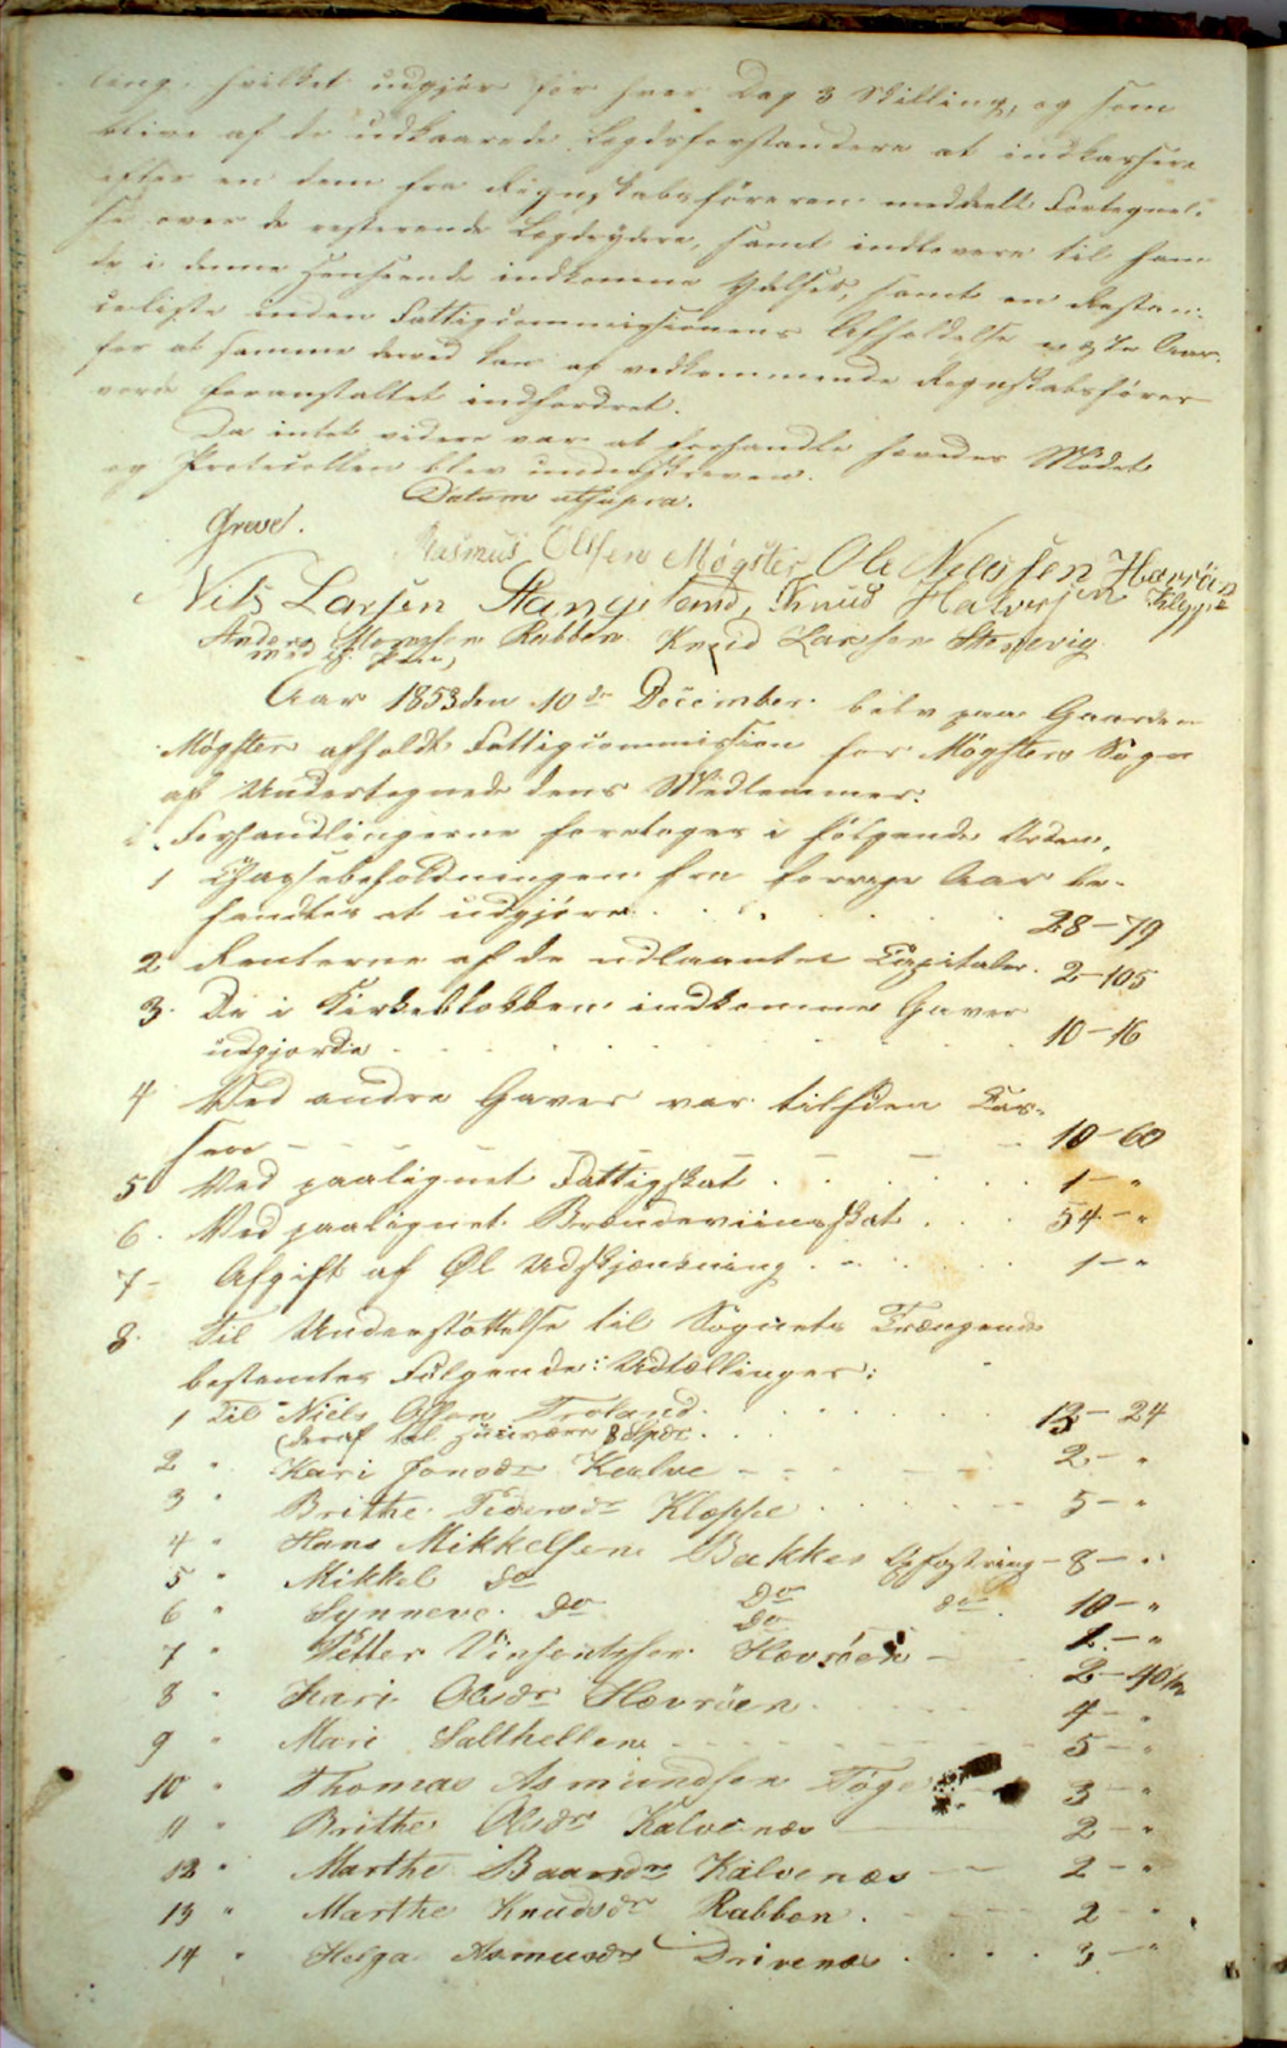 ling, hvilket udgjør for hver Dag 3 Skilling, og som
blive af de udkaarede Lægdsforstandere at indkassere
efter en dem fra Regnskabsføreren meddelt Fortegnel-
se over de resterende Lægdsydere, samt indlevere til ham
de i denne Henseende indkomne Ydelser, samt en Restan-
celiste inden Fattigcommissionens Afholdelse næste Aar,
for at samme derved kan af vedkommende Regnskabsfører
vorde foranstaltet indfordret.
Da intet videre var at forhandle hævedes Mødet
og Protocollen blev underskreven.
Datum utsupra.
Greve.
Rasmus Olssen Møgster Ole Nelssen Hævröen
Nils Larsen Stangeland, Knud Halversen Kleppe
Anders Monssen Rabben Knud Larssen Steensvig
med ph. Pen,
Aar 1853 den 10de December blev paa Gaarden
Møgster afholdt Fattigcommission for Møgsters Sogn
af Undertegnede dens Medlemmer.
Forhandlingerne foretoges i følgende Orden.
1 Cassebeholdningen fra forrige Aar be-
fandtes at udgjøre . . . 28 - 79
2 Renterne af de udlaante Capitaler. 2 - 105
3. De i Kirkeblokken indkomne Gaver
udgjorde . . . 10 - 16
4 Ved andre Gaver var tilflden Cas-
sen - - - 10 - 60
5 Ved paalignet Fattigskat . . . 1 - "
6. Ved paalignet Brændeviinsskat . . . 54 - "
7 - Afgift af Øl Udskjænkning . . . 1 - "
8. Til Understøttelse til Sognets Trængende
bestemtes Følgende Udtællinger:
1 Til Niels Olsen Troland . . . 13 - 24
(deraf til Huusvære 8 Spdr. . .
2 " Kari Jonsdr Kalve - - - 2 - "
3 " Brithe Pedersdr Kleppe . . . 5 - "
4 " Hans Mikkelsen Bakken Opfostring - 8 - "
5 " Mikkel do Do do. 10 - "
6 " Synneve do Do 1 - "
7 " Petter Vinsentssen Hævröen - 2 - 40
8 " Kari Olsdr Hævröen . . . 4 - "
9 " Mari Salthellen - - - 5 - "
10 " Thomas Asmundsen Tøge 3 - "
11 " Brithe Olsdr Kalvenæs 2 - "
12 " Marthe Baardsdr Kalvenæs - 2 - "
13 " Marthe Knudsdr Rabben . - - 2 - "
14 " Helga Rasmusdr Drivenæs . . . 3 - "